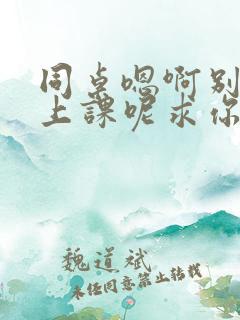 同桌嗯啊别
上課呢求你
魏道斌
未经同意禁止转载